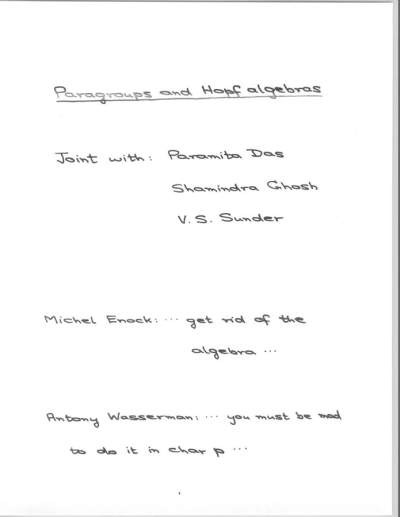 Paragroups and Hopf algebras
Joint with: Paramita Das
Shamindra Ghosh
V. S. Sunder
Michel Enock: ... get rid of the
algebra ...
Antony Wasserman: ... you must be mad
to do it in char p ...